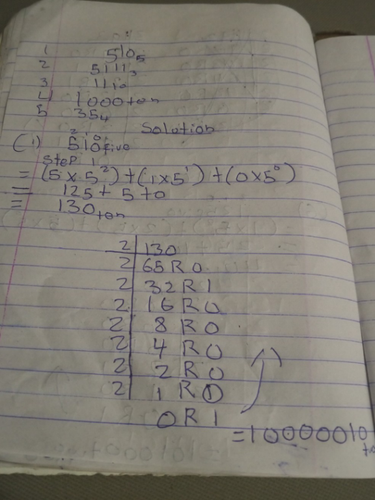 1 510₅
2 5111₅
3 111₀
4 1000 ten
5 354
Solution
(1) 5²1¹0⁰ five
Step 1
= (5 x 5²) + (1 x 5¹) + (0 x 5⁰)
= 125 + 5 + 0
= 130 ten
2 130
2 65 R 0
2 32 R 1
2 16 R 0
2 8 R 0
2 4 R 0
2 2 R 0
2 1 R 0
0 R 1
= 10000010